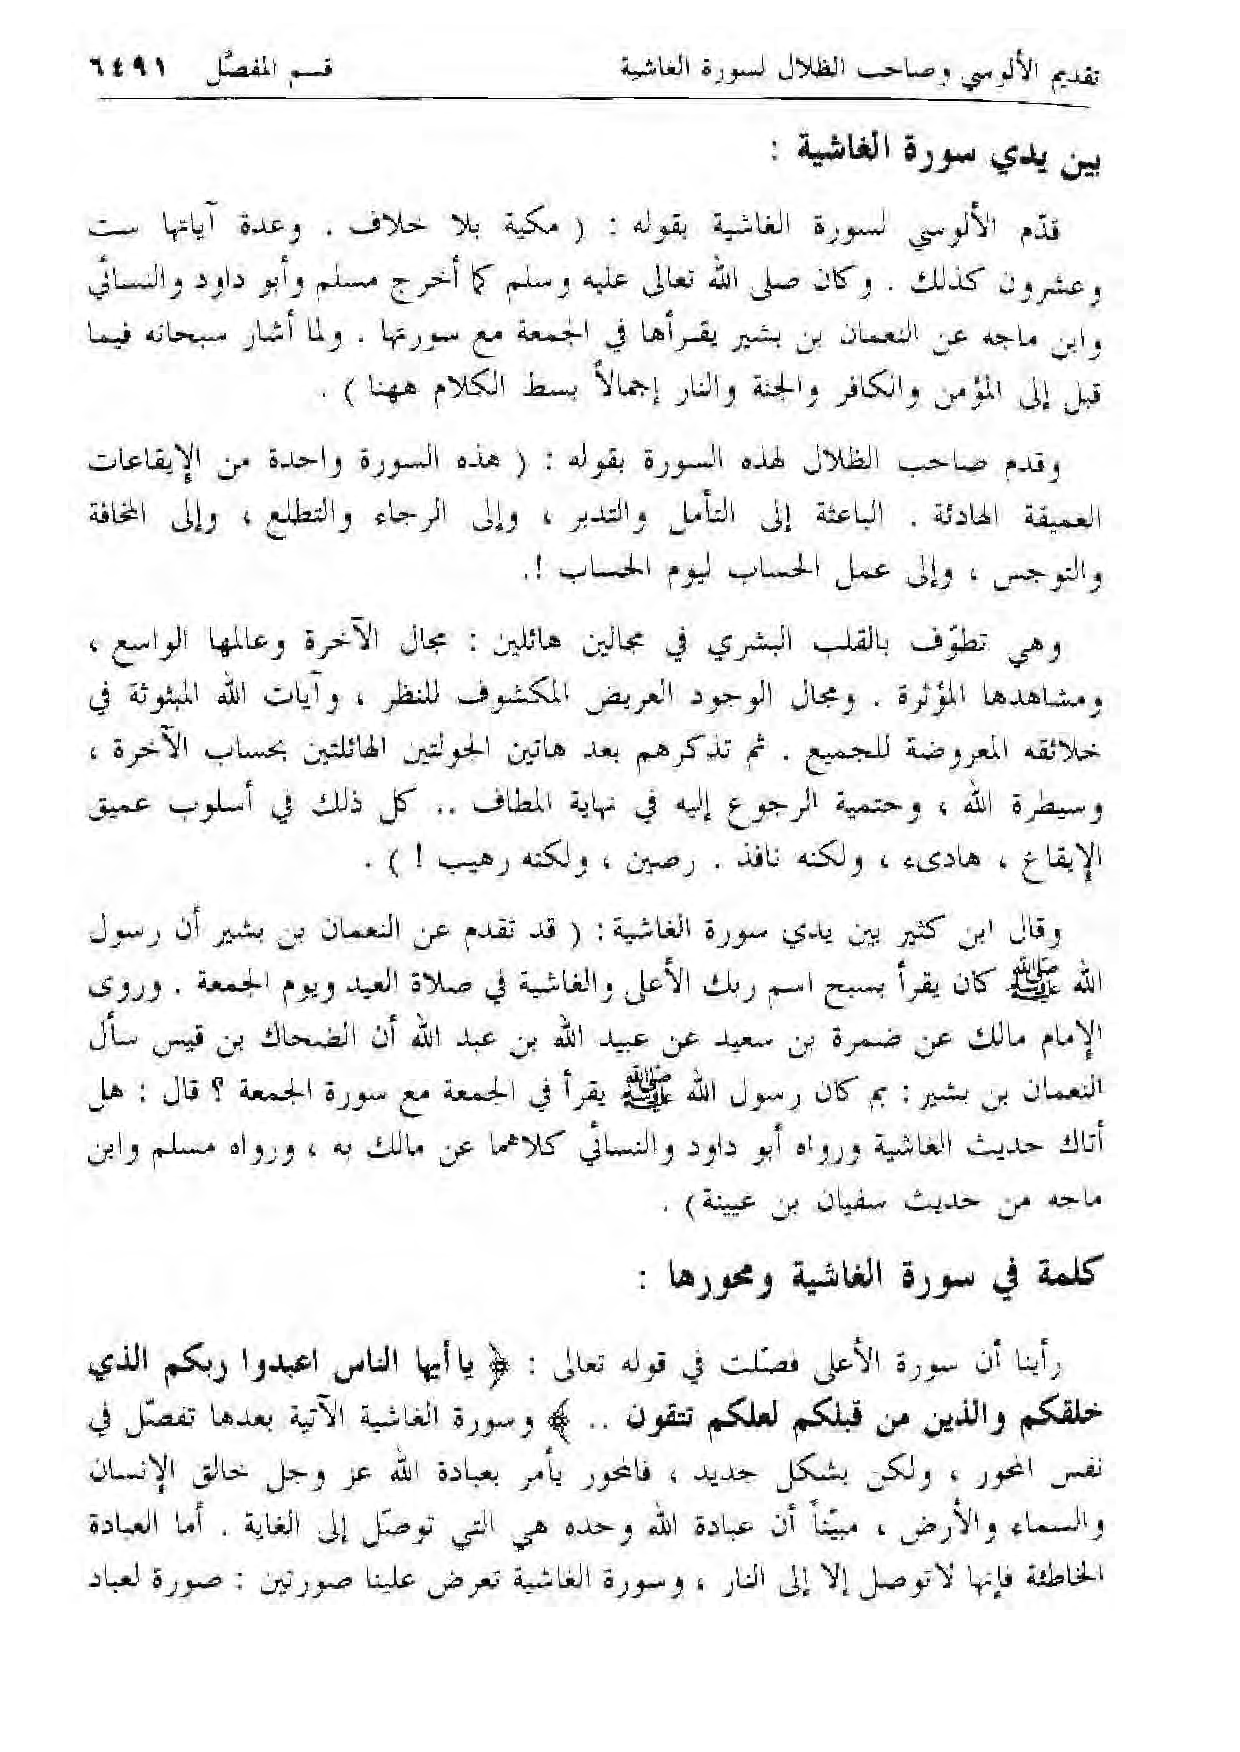 تقديم الألوسي وصاحب الظلال لسورة الغاشية قسم المفصّل ٦٤٩١
بين يدي سورة الغاشية :
قدّم الألوسي لسورة الغاشية بقوله : ( مكية بلا خلاف . وعدة آياتها ست
وعشرون كذلك . وكان صلى الله تعالى عليه وسلم كما أخرج مسلم وأبو داود والنسائي
وابن ماجه عن النعمان بن بشير يقرأها في الجمعة مع سورتها . ولما أشار سبحانه فيما
قبل إلى المؤمن والكافر والجنة والنار إجمالاً بسط الكلام ههنا ) .
وقدم صاحب الظلال لهذه السورة بقوله : ( هذه السورة واحدة من الإيقاعات
العميقة الهادئة . الباعثة إلى التأمل والتدبر ، وإلى الرجاء والتطلع ، وإلى المخافة
والتوجس ، وإلى عمل الحساب ليوم الحساب !.
وهي تطوّف بالقلب البشري في مجالين هائلين : مجال الآخرة وعالمها الواسع ،
ومشاهدها المؤثرة . ومجال الوجود العريض المكشوف للنظر ، وآيات الله المبثوثة في
خلائقه المعروضة للجميع . ثم تذكرهم بعد هاتين الجولتين الهائلتين بحساب الآخرة ،
وسيطرة الله ، وحتمية الرجوع إليه في نهاية المطاف .. كل ذلك في أسلوب عميق
الإيقاع ، هادىء ، ولكنه نافذ . رصين ، ولكنه رهيب ! ) .
وقال ابن كثير بين يدي سورة الغاشية : ( قد تقدم عن النعمان بن بشير أن رسول
الله ﷺ كان يقرأ بسبح اسم ربك الأعلى والغاشية في صلاة العيد ويوم الجمعة . وروى
الإمام مالك عن ضمرة بن سعيد عن عبيد الله بن عبد الله أن الضحاك بن قيس سأل
النعمان بن بشير : بم كان رسول الله ﷺ يقرأ في الجمعة مع سورة الجمعة ؟ قال : هل
أتاك حديث الغاشية ورواه أبو داود والنسائي كلاهما عن مالك به ، ورواه مسلم وابن
ماجه من حديث سفيان بن عيينة ) .
كلمة في سورة الغاشية ومحورها :
رأينا أن سورة الأعلى فصّلت في قوله تعالى : ﴿ ياأيها الناس اعبدوا ربكم الذي
خلقكم والذين من قبلكم لعلكم تتقون .. ﴾ وسورة الغاشية الآتية بعدها تفصّل في
نفس المحور ، ولكن بشكل جديد ، فالمحور يأمر بعبادة الله عز وجل خالق الإنسان
والسماء والأرض ، مبيّناً أن عبادة الله وحده هي التي توصّل إلى الغاية . أما العبادة
الخاطئة فإنها لاتوصل إلا إلى النار ، وسورة الغاشية تعرض علينا صورتين : صورة لعباد